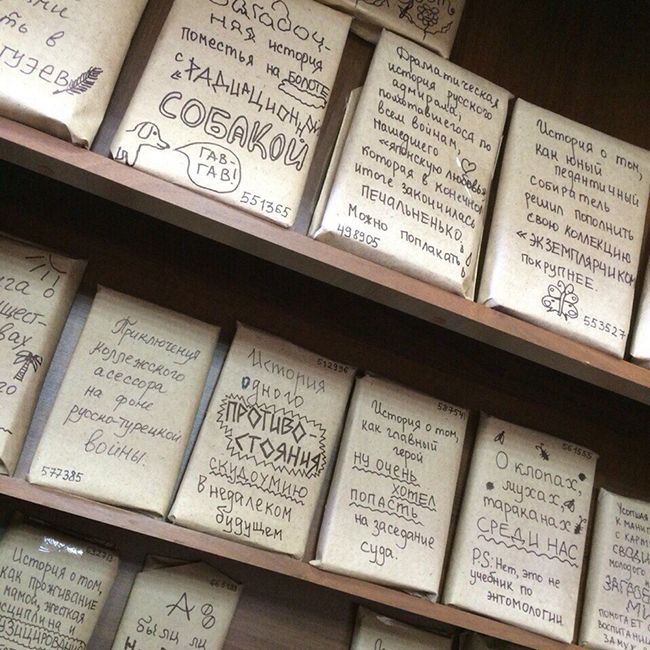 ть в
гузев
Загадоч-
ная история
поместья на болоте
с «РАДИАЦИОННОЙ
СОБАКОЙ
ГАВ-
ГАВ!
551365
Драматическая
история русского
адмирала,
помотавшегося по
всем войнам,
нашедшего
«японскую любовь»
которая в конечном
итоге закончилась
ПЕЧАЛЬНЕНЬКО.
Можно поплакать
498905
История о том,
как юный
педантичный
собиратель
решил пополнить
свою коллекцию
«ЭКЗЕМПЛЯРчиком
покрупнее.
553527
Приключения
коллежского
асессора
на фоне
русско-турецкой
войны.
577385
512996
История
одного
ПРОТИВО-
СТОЯНИЯ
скудоумию
в недалеком
будущем
История о том,
как главный
герой
ну очень
хотел
попасть
на заседание
суда.
561555
О клопах,
мухах
тараканах
СРЕДИ НАС
P.S: Нет, это не
учебник по
энтомологии
История о том,
как проживание
с мамой, жесткая
А
были ли